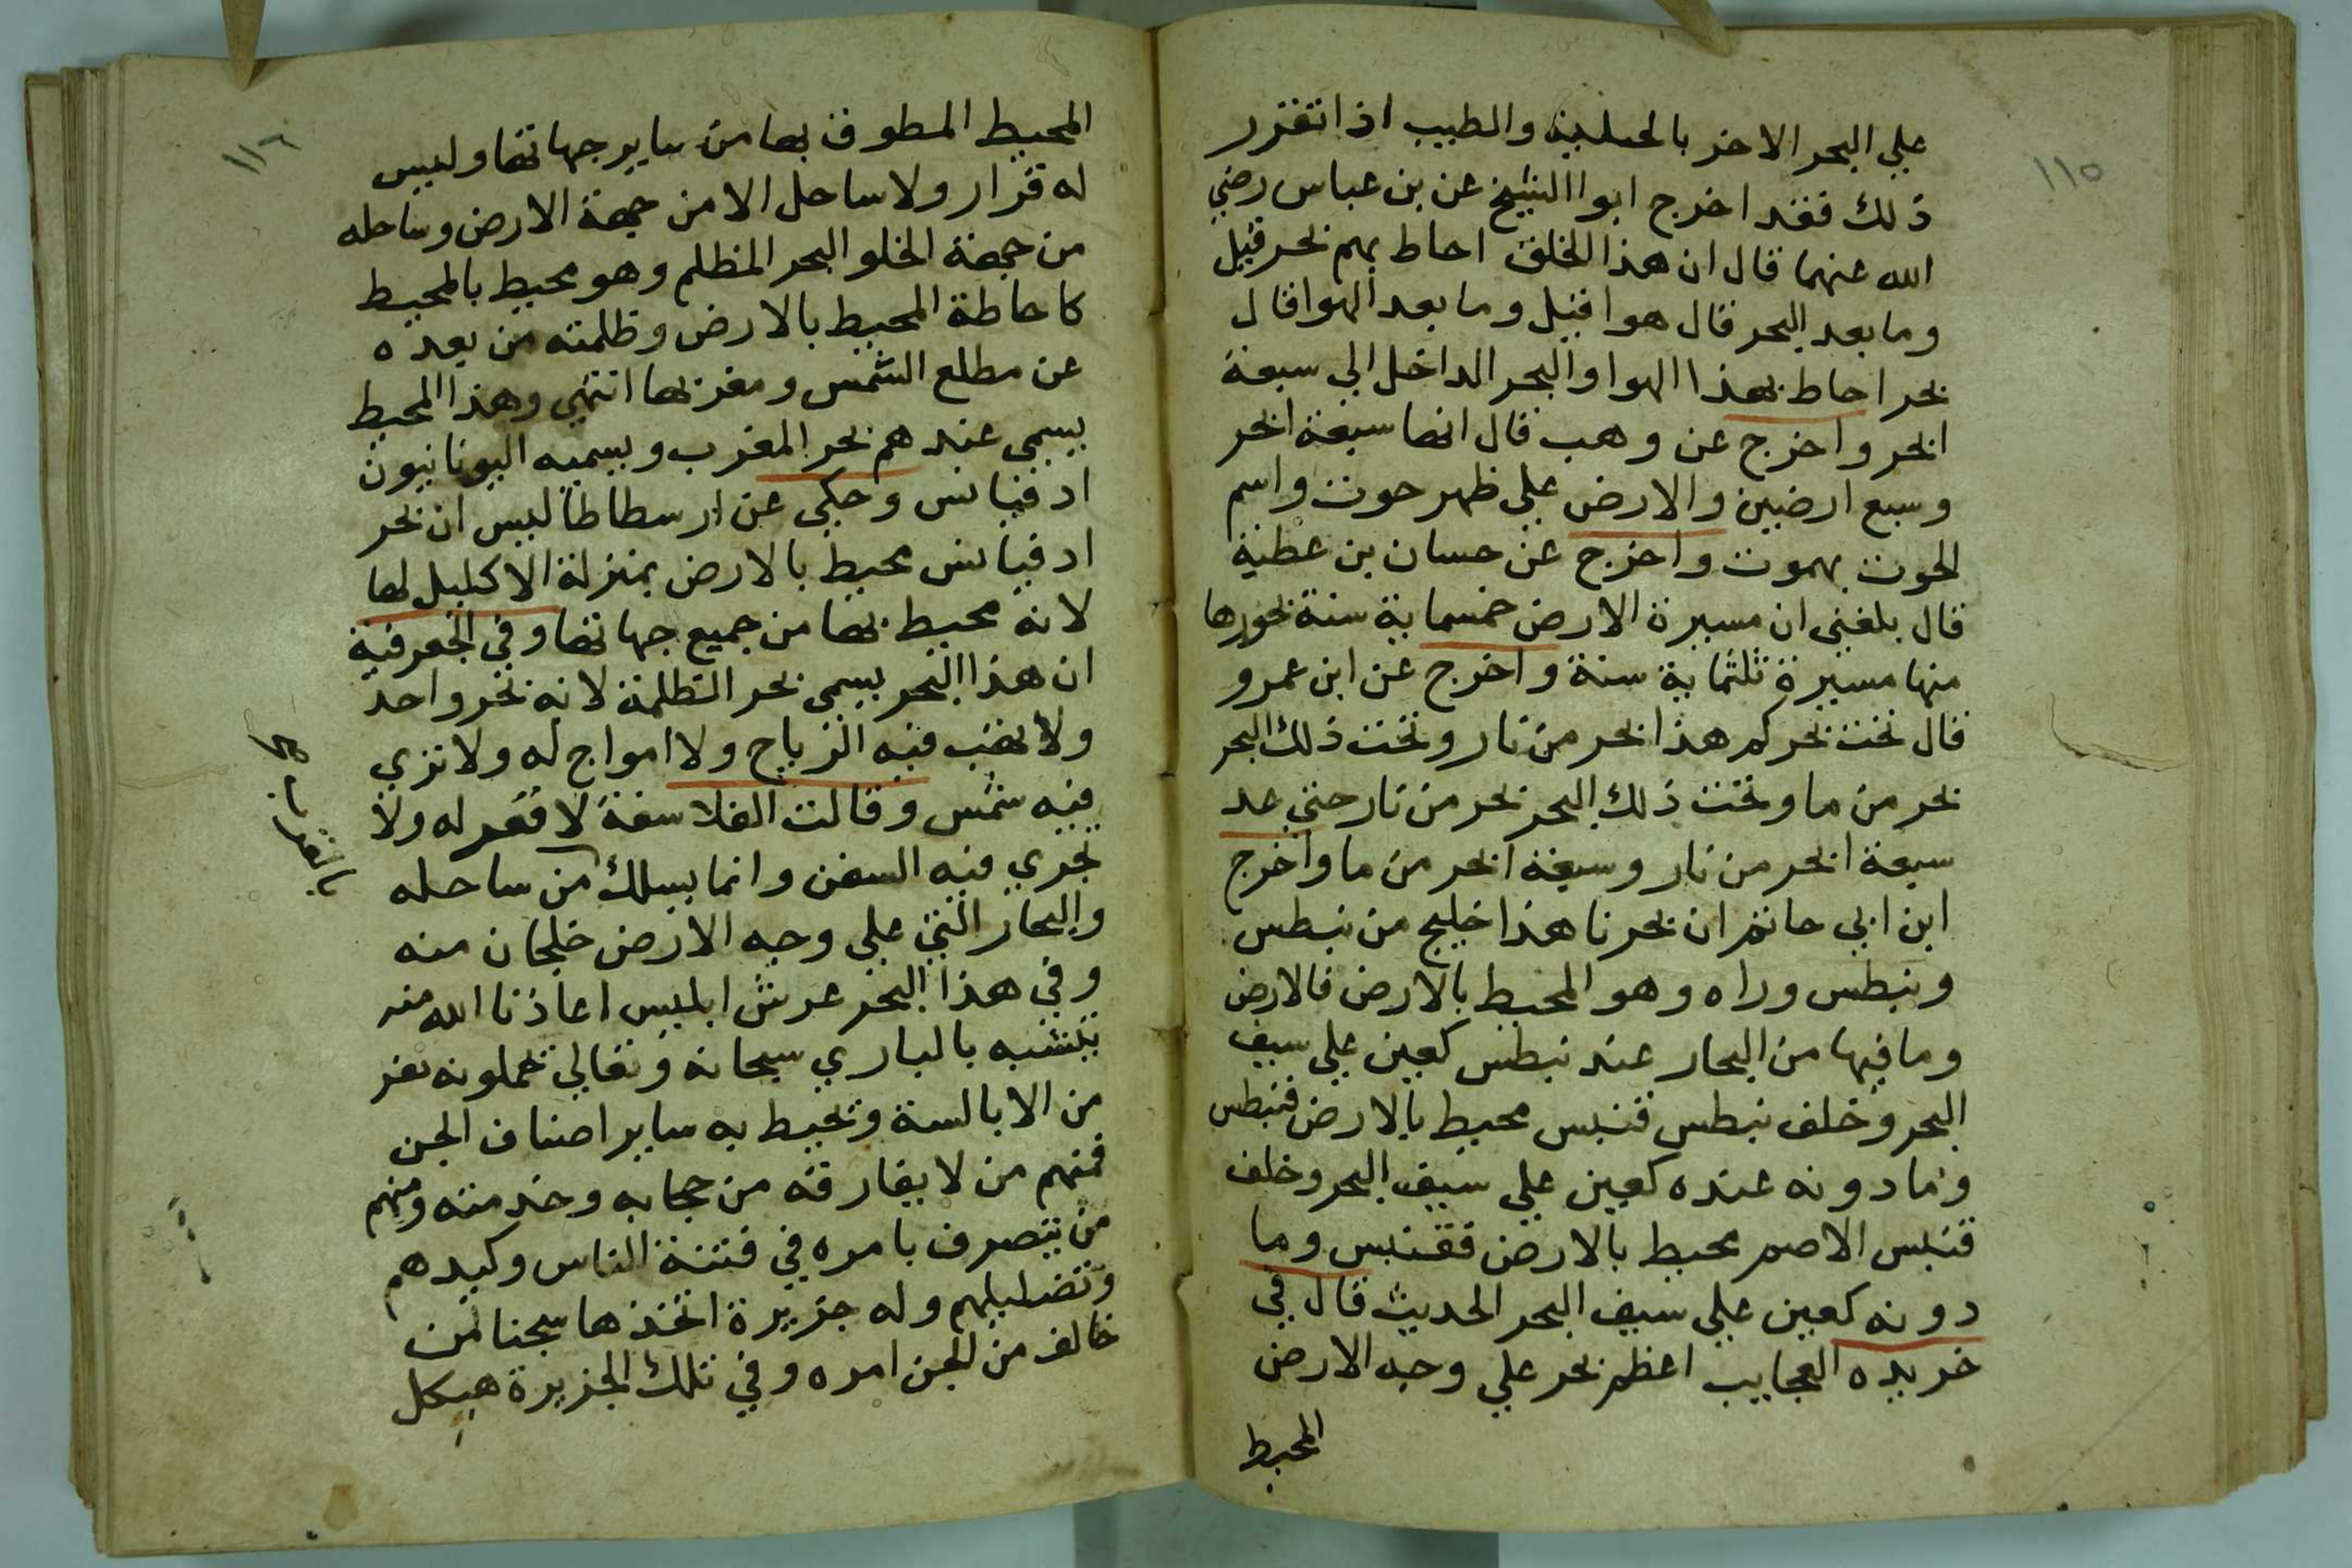 ١١٥
علي البحر الاخر بالحلية والطيب اذا تقرر
ذلك فقد اخرج ابوا الشيخ عن بن عباس رضي
الله عنهما قال ان هذا الخلق احاط بهم بحر قيل
وما بعد البحر قال هوا قيل وما بعد الهوا قال
بحر احاط بهذا الهوا والبحر الداخل الي سبعة
ابحر واخرج عن وهب قال انها سبعة ابحر
وسبع ارضين والارض علي ظهر حوت واسم
الحوت بهموت واخرج عن حسان بن عطية
قال بلغني ان مسيرة الارض خمسماية سنة بحورها
منها مسيرة ثلثماية سنة واخرج عن ابن عمرو
قال تحت بحركم هذا بحر من نار وتحت ذلك البحر
بحر من ما وتحت ذلك البحر بحر من نار حتي عد
سبعة ابحر من نار وسبعة ابحر من ما واخرج
ابن ابي حاتم ان بحرنا هذا خليج من نيطس
ونيطس وراه وهو المحيط بالارض فالارض
وما فيها من البحار عند نيطس كعين علي سيف
البحر وخلف نيطس قنبس محيط بالارض فنيطس
وما دونه عنده كعين علي سيف البحر وخلف
قنبس الاصم محيط بالارض فقنبس وما
دونه كعين علي سيف البحر الحديث قال في
خريده العجايب اعظم بحر علي وجه الارض
المحيط
١١٦
المحيط المطوف بها من ساير جهاتها وليس
له قرار ولا ساحل الا من جهة الارض وساحله
من جهة الخلو البحر المظلم وهو محيط بالمحيط
كاحاطة المحيط بالارض وظلمته من بعده
عن مطلع الشمس ومغربها انتهي وهذا المحيط
يسمي عندهم بحر المغرب ويسميه اليونانيون
ادقيانس وحكي عن ارسطاطاليس ان بحر
ادقيانس محيط بالارض بمنزلة الاكليل لها
لانه محيط بها من جميع جهاتها وفي الجعرفية
ان هذا البحر يسمي بحر الظلمة لانه بحر واحد
ولا تهب فيه الرياح ولا امواج له ولا تري
فيه شمس وقالت الفلاسفة لا قعر له ولا
تجري فيه السفن وانما يسلك من ساحله
والبحار التي علي وجه الارض خلجان منه
وفي هذا البحر عرش ابليس اعاذنا الله منه
يتشبه بالباري سبحانه وتعالي تحملونه نفر
من الابالسة وتحيط به ساير اصناف الجن
فمنهم من لا يفارقه من حجابه وخدمته ومنهم
من يتصرف بامره في فتنة الناس وكيدهم
وتضليلهم وله جزيرة اتخذها سجنا لمن
خالف من الجن امره وفي تلك الجزيرة هيكل